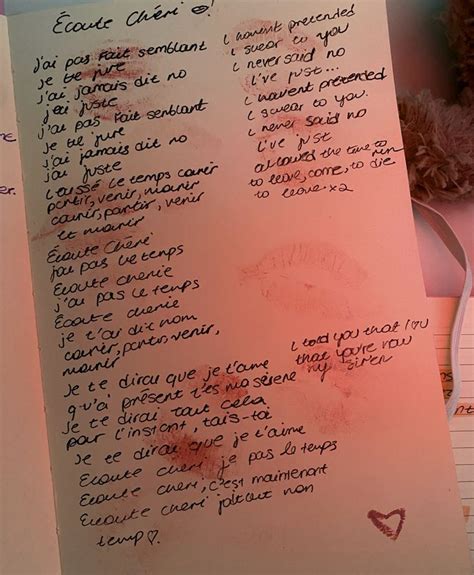 Écoute Chéri !
j'ai pas fait semblant
je te jure
j'ai jamais dit no
j'ai juste
j'ai pas fait semblant
je te jure
j'ai jamais dit no
j'ai juste
laissé le temps courir
partir, venir, mourir
courir, partir, venir
et mourir
Écoute Chéri
j'ai pas le temps
Écoute cherie
j'a pas le temps
Écoute cherie
je t'ai dit nom
courir, partir, venir,
mourir
Je te dirai que je t'aime
qu'a présent t'es ma sirène
Je te dirai tout cela
pour l'instant, tais-toi
Je te dirai que je t'aime
Écoute cheri je pas le temps
Écoute cheri, c'est maintenant
Écoute cheri tout mon
temp
I havent pretended
I swear to you
I never said no
I've just...
I havent pretended
I swear to you.
I never said no
I've just
allowed the time to run
to leave, come, to die
to leave x2
I told you that I you
that you're now
my siren
er.